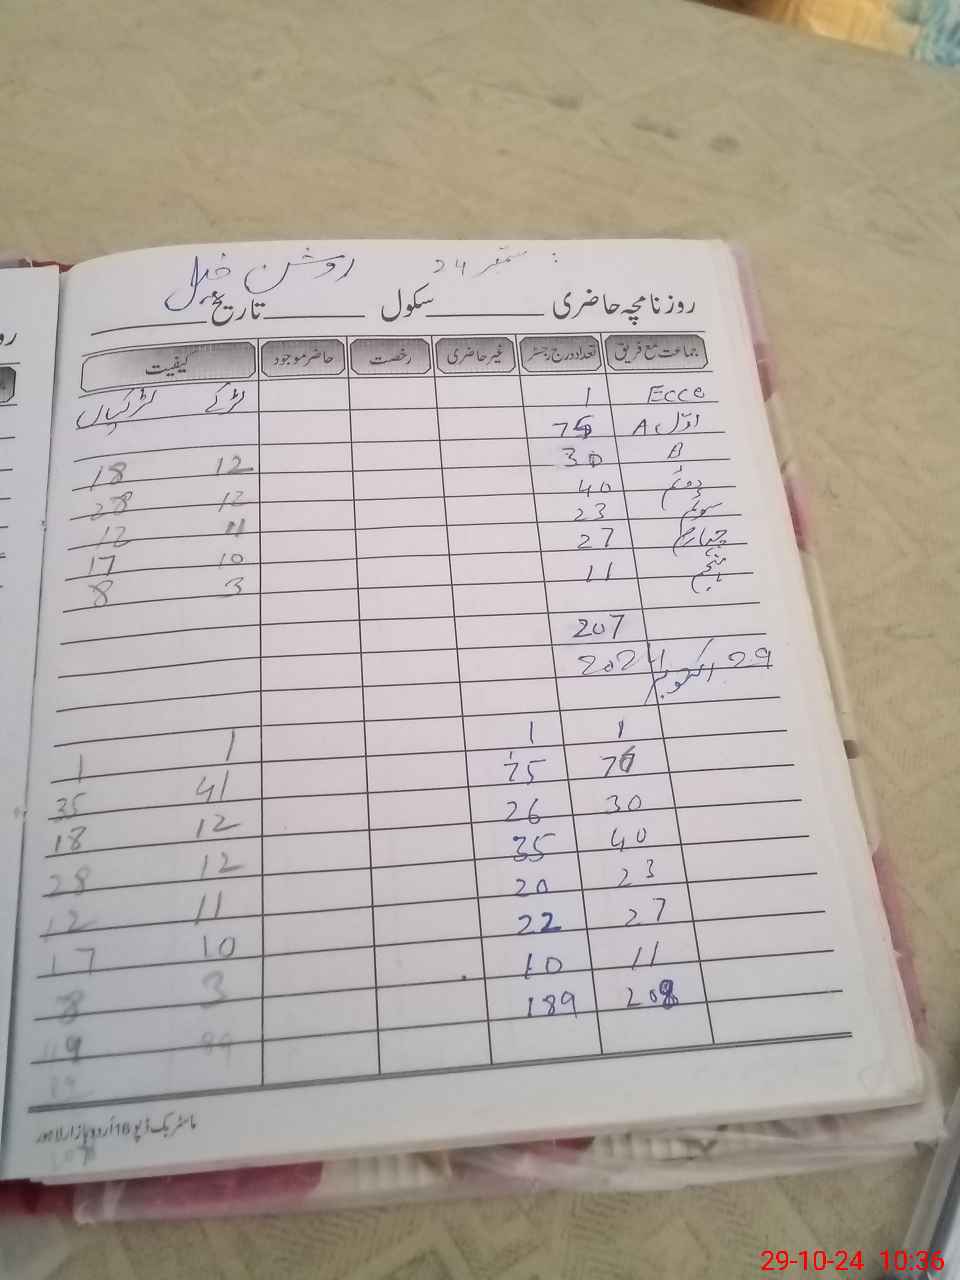 روشن خیل ستمبر 24
روزنامچہ حاضری ______ سکول ______ تاریخ ______
جماعت مع فریق تعداد درج رجسٹر غیر حاضری رخصت حاضر موجود کیفیت
Ecce 1 لڑکے لڑکیاں
اوّل A 75
B 30 12 18
دوئم 40 12 28
سوئم 23 11 12
چہارم 27 10 17
پنجم 11 3 8
207
29 اکتوبر 2024
1 1 1 1
76 75 41 35
30 26 12 18
40 35 12 28
23 20 11 12
27 22 10 17
11 10 3 8
208 189 89 119
ماسٹر بک ڈپو 18 اردو بازار لاہور
29-10-24 10:36